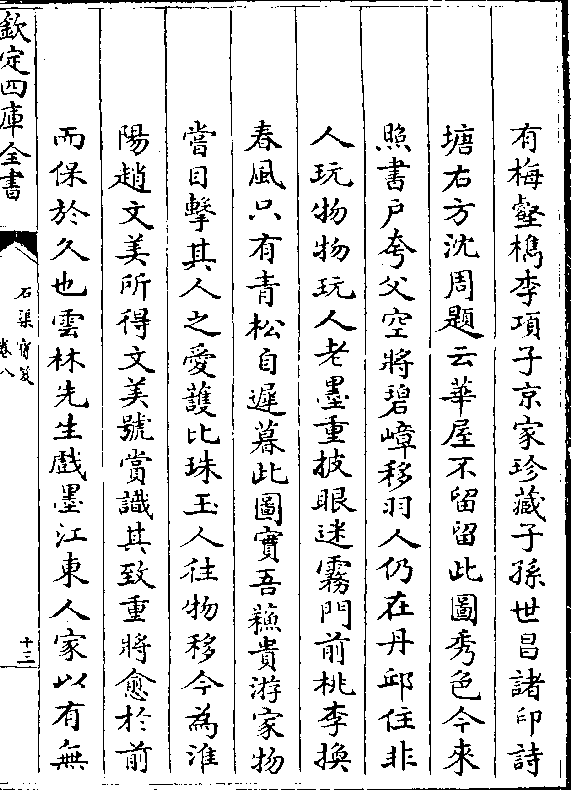 有梅壑檇李項子京家珍藏子孫世昌諸印詩
塘右方沈周題云華屋不留留此圖秀色今來
照書戶夸父空將碧嶂移羽人仍在丹邱住非
人玩物物玩人老墨重披眼迷霧門前桃李換
春風只有青松自遲暮此圖實吾蘓貴游家物
嘗目擊其人之愛護比珠玉人往物移今為淮
陽趙文美所得文美號賞識其致重將愈於前
而保於久也雲林先生戲墨江東人家以有無
欽定四庫全書
石渠寶笈
卷八
十三